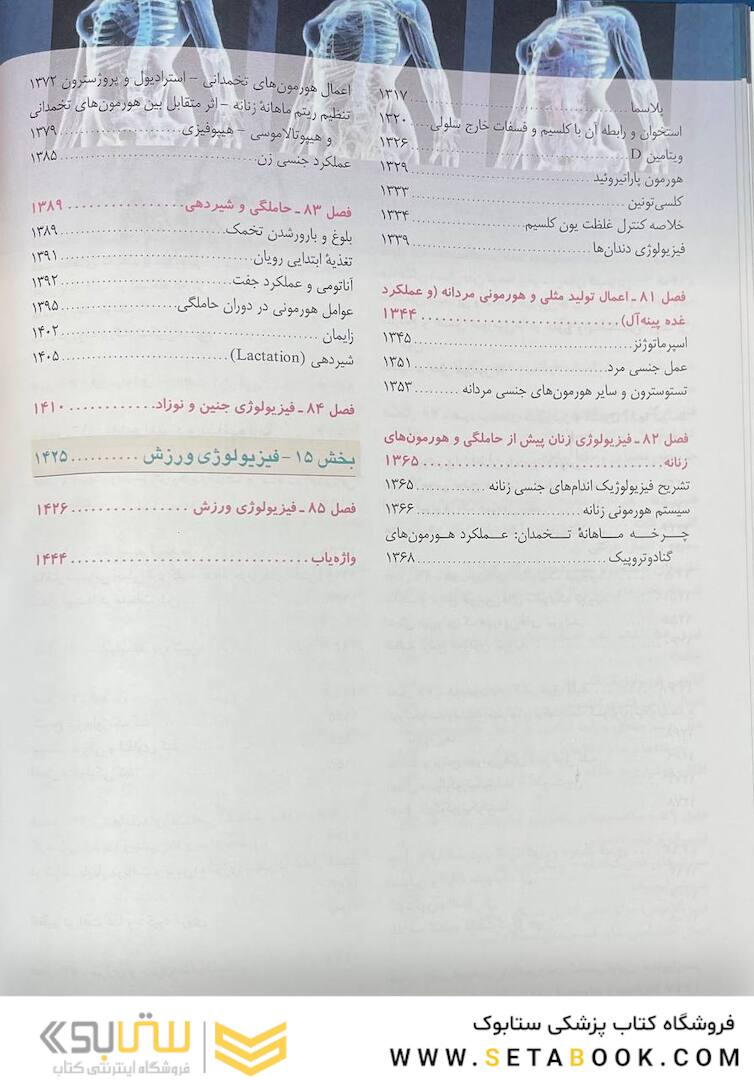 پلاسما ........ ۱۳۱۷
استخوان و رابطه آن با کلسیم و فسفات خارج سلولی .... ۱۳۲۰
ویتامین D ........ ۱۳۲۶
هورمون پاراتیروئید ........ ۱۳۲۹
کلسی‌تونین ........ ۱۳۳۳
خلاصه کنترل غلظت یون کلسیم ........ ۱۳۳۴
فیزیولوژی دندان‌ها ........ ۱۳۳۹
فصل ۸۱ ـ اعمال تولید مثلی و هورمونی مردانه (و عملکرد
غده پینه‌آل) ........ ۱۳۴۴
اسپرماتوژنز ........ ۱۳۴۵
عمل جنسی مرد ........ ۱۳۵۱
تستوسترون و سایر هورمون‌های جنسی مردانه ........ ۱۳۵۳
فصل ۸۲ ـ فیزیولوژی زنان پیش از حاملگی و هورمون‌های
زنانه ........ ۱۳۶۵
تشریح فیزیولوژیک اندام‌های جنسی زنانه ........ ۱۳۶۵
سیستم هورمونی زنانه ........ ۱۳۶۶
چرخه ماهانهٔ تخمدان: عملکرد هورمون‌های
گنادوتروپیک ........ ۱۳۶۸
اعمال هورمون‌های تخمدانی - استرادیول و پروژسترون ۱۳۷۲
تنظیم ریتم ماهانهٔ زنانه - اثر متقابل بین هورمون‌های تخمدانی
و هیپوتالاموسی - هیپوفیزی ........ ۱۳۷۹
عملکرد جنسی زن ........ ۱۳۸۵
فصل ۸۳ ـ حاملگی و شیردهی ........ ۱۳۸۹
بلوغ و بارورشدن تخمک ........ ۱۳۸۹
تغذیهٔ ابتدایی رویان ........ ۱۳۹۱
آناتومی و عملکرد جفت ........ ۱۳۹۲
عوامل هورمونی در دوران حاملگی ........ ۱۳۹۵
زایمان ........ ۱۴۰۲
شیردهی (Lactation) ........ ۱۴۰۵
فصل ۸۴ ـ فیزیولوژی جنین و نوزاد ........ ۱۴۱۰
بخش ۱۵ - فیزیولوژی ورزش ........ ۱۴۲۵
فصل ۸۵ ـ فیزیولوژی ورزش ........ ۱۴۲۶
واژه‌یاب ........ ۱۴۴۴
فروشگاه کتاب پزشکی ستابوک
WWW.SETABOOK.COM
ستابوک
فروشگاه اینترنتی کتاب